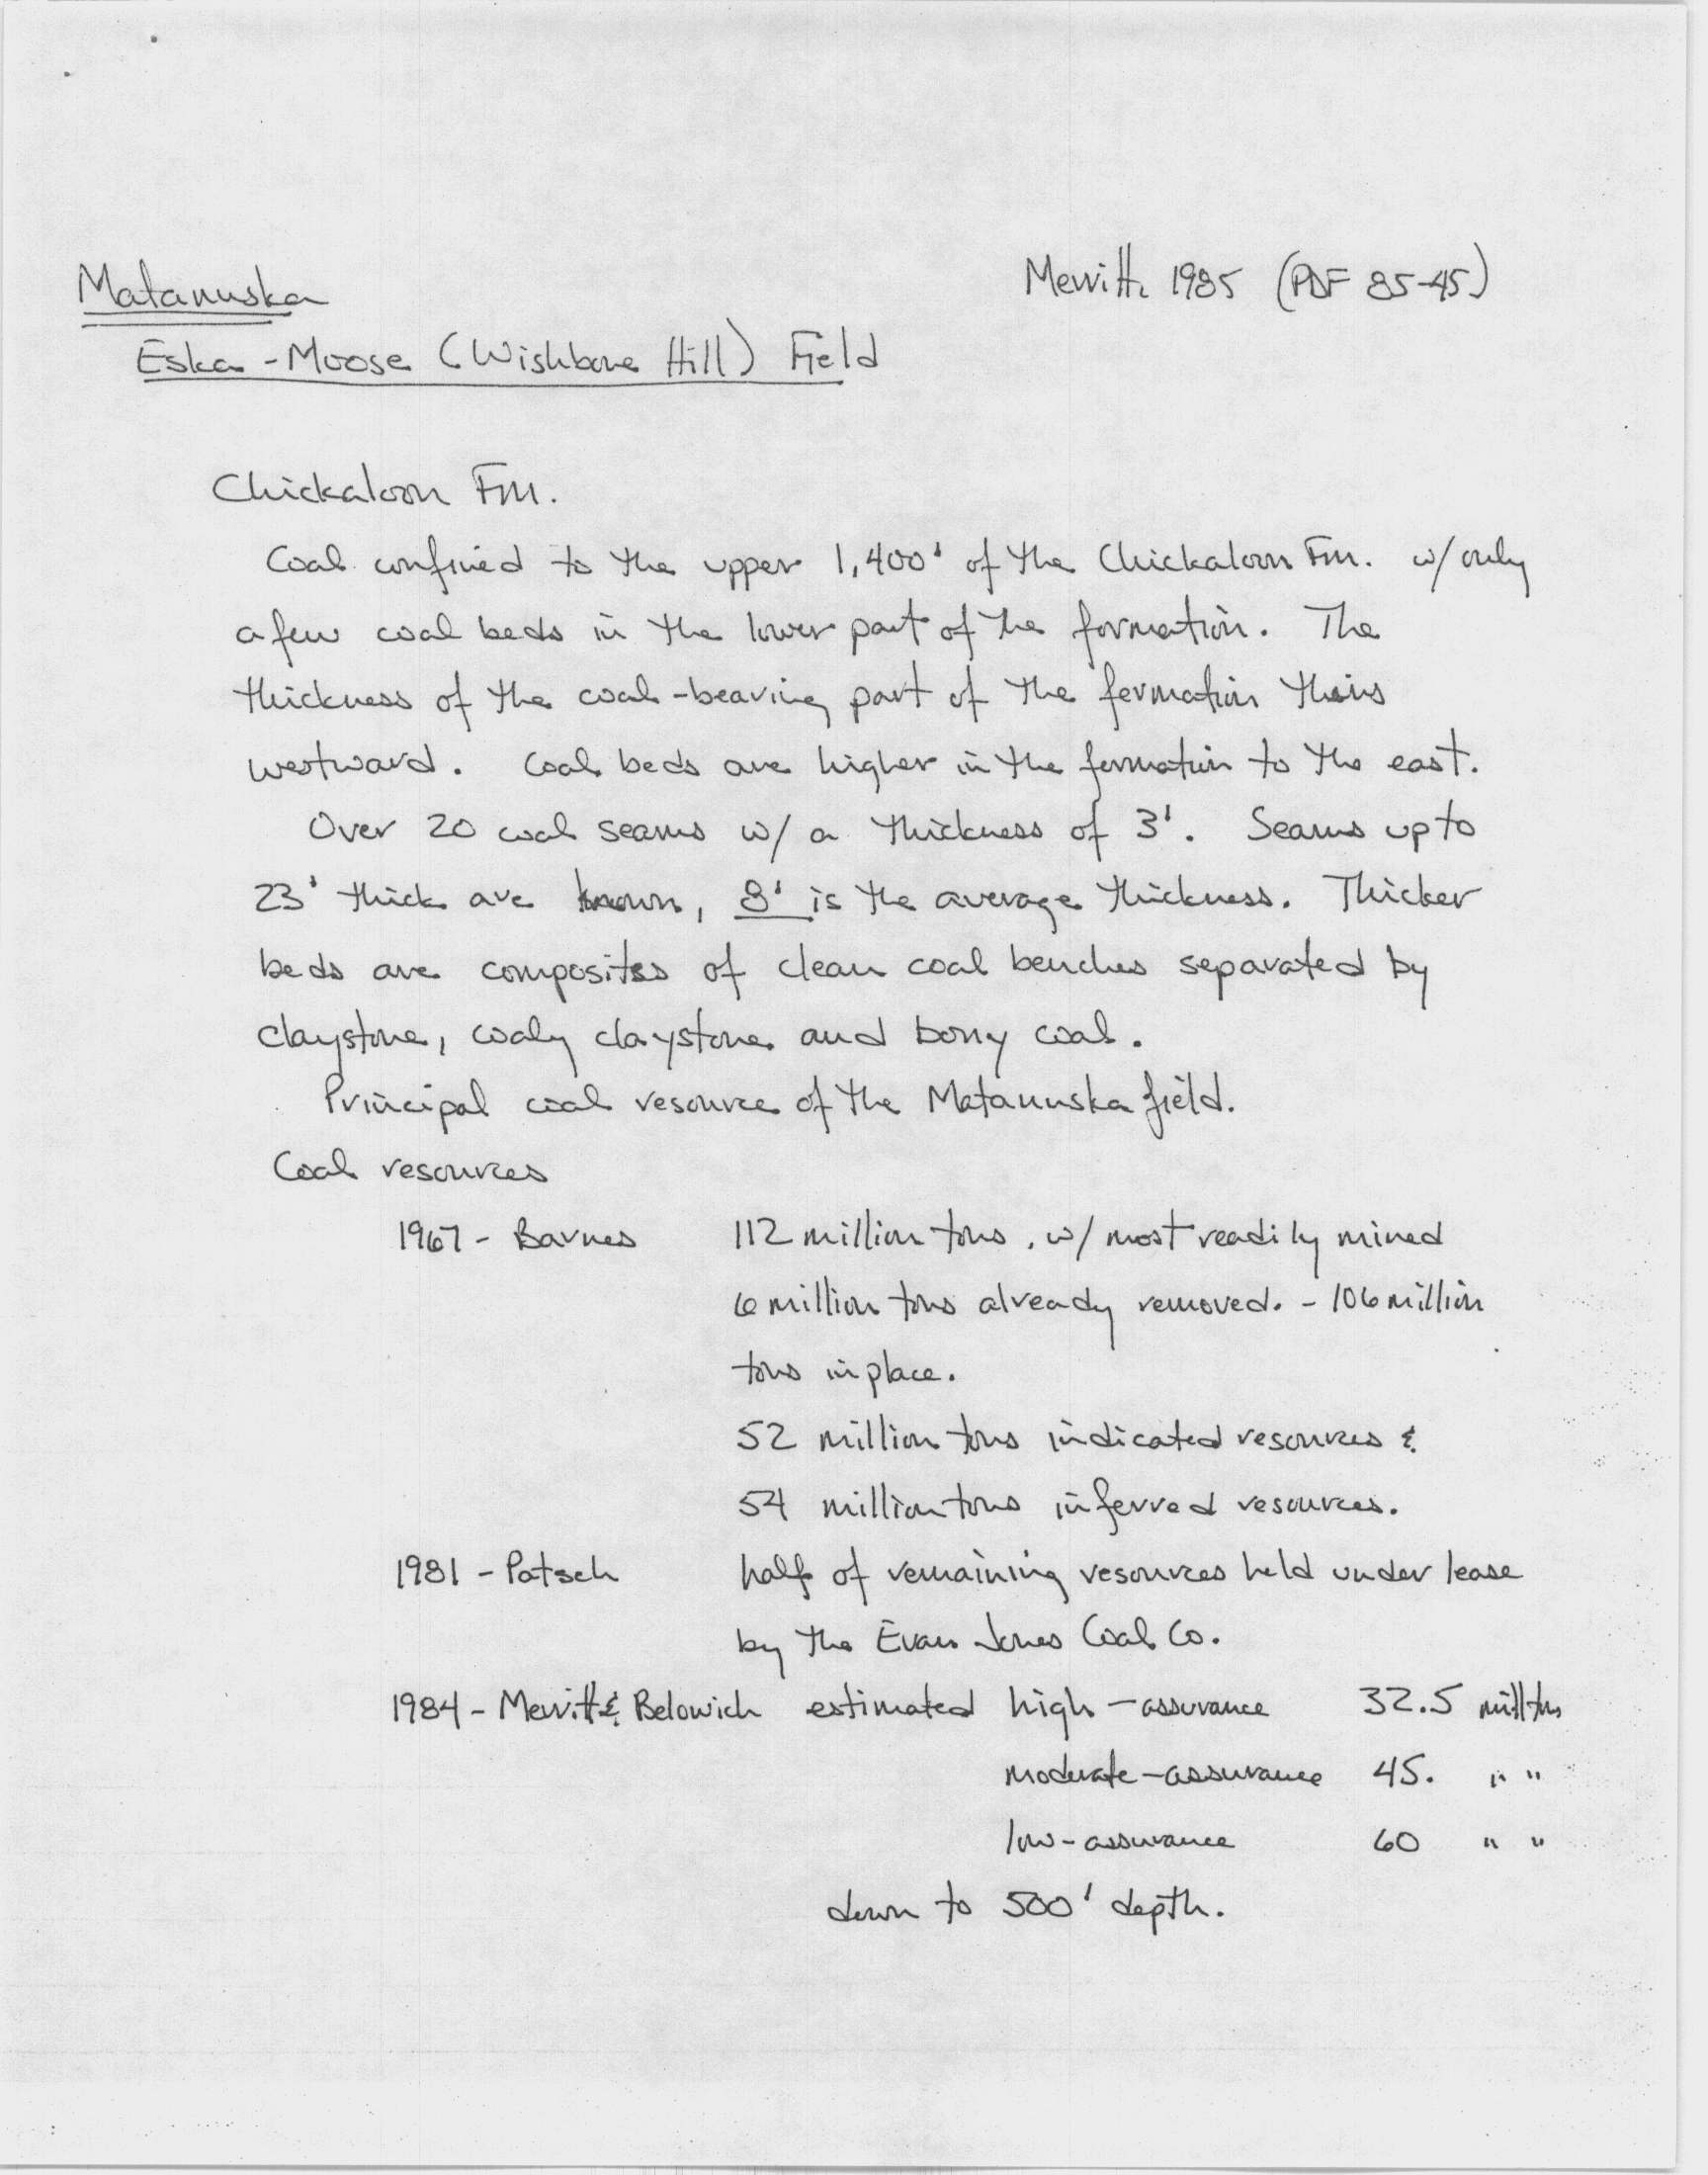 Matanuska
Merritt 1985 (PDF 85-45)
Eska - Moose (Wishbone Hill) Field
Chickaloon Fm.
Coal confined to the upper 1,400' of the Chickaloon Fm. w/ only
a few coal beds in the lower part of the formation. The
thickness of the coal-bearing part of the formation thins
westward. Coal beds are higher in the formation to the east.
Over 20 coal seams w/ a thickness of 3'. Seams up to
23' thick are known, 8' is the average thickness. Thicker
beds are composites of clean coal benches separated by
claystone, coaly claystone and bony coal.
Principal coal resource of the Matanuska field.
Coal resources
1967 - Barnes 112 million tons, w/ most readily mined
6 million tons already removed. - 106 million
tons in place.
52 million tons indicated resources &
54 million tons inferred resources.
1981 - Patsch half of remaining resources held under lease
by the Evan Jones Coal Co.
1984 - Merritt & Belowich estimated high-assurance 32.5 mill tns
moderate-assurance 45. " "
low-assurance 60 " "
down to 500' depth.